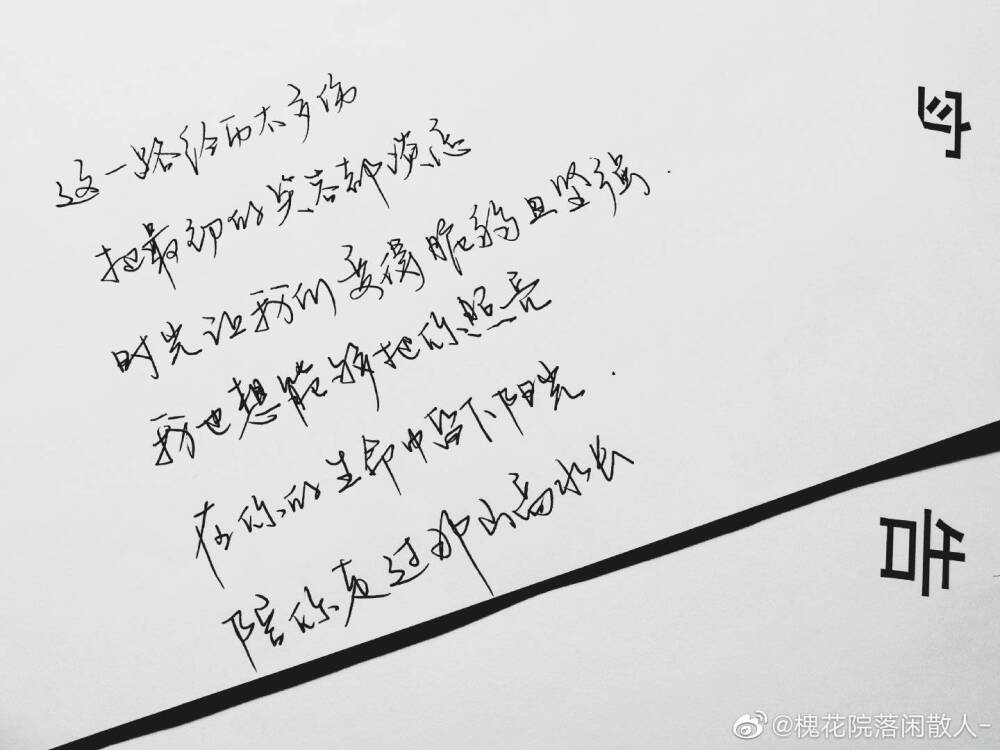 这一路经历太多伤
把最初的笑容都淡忘
时光让我们变得脆弱且坚强.
我也想能够把你照亮
在你的生命中留下阳光.
陪你走过那山高水长
告
@槐花院落闲散人-